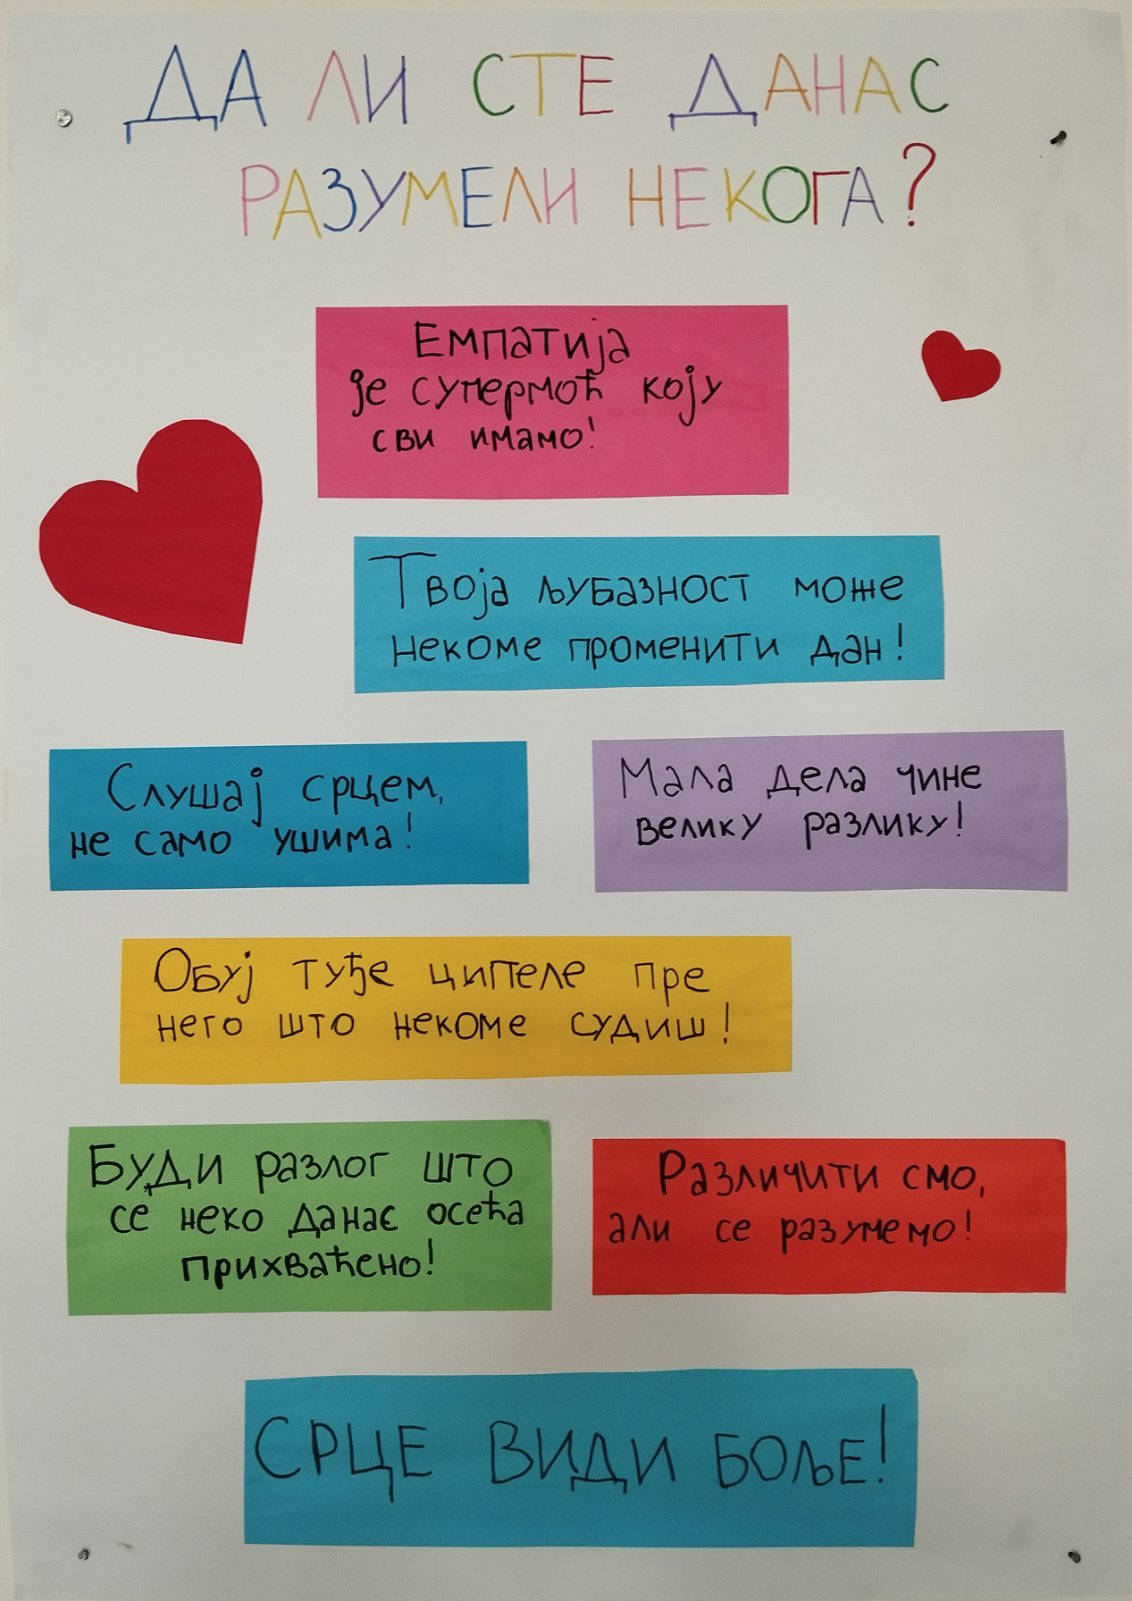 ДА ЛИ СТЕ ДАНАС
РАЗУМЕЛИ НЕКОГА?
Емпатија
је супермоћ коју
сви имамо!
Твоја љубазност може
некоме променити дан!
Слушај срцем,
не само ушима!
Мала дела чине
велику разлику!
Обуј туђе ципеле пре
него што некоме судиш!
Буди разлог што
се неко данас осећа
прихваћено!
Различити смо,
али се разумемо!
СРЦЕ ВИДИ БОЉЕ!